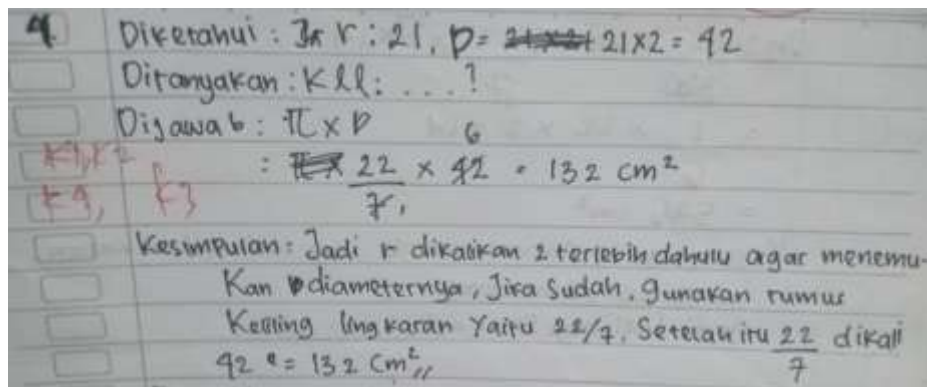 4. Diketahui : r : 21, D = 21x2 = 42
Ditanyakan : Kll : . . . ?
Dijawab : π x D
6
: 22 x 42 = 132 cm²
7 1
K1, K2
K4, K3
Kesimpulan : Jadi r dikalikan 2 terlebih dahulu agar menemu-
kan diameternya, Jika sudah, gunakan rumus
Keliling lingkaran yaitu 22/7. Setelah itu 22/7 dikali
42 = 132 cm²,,